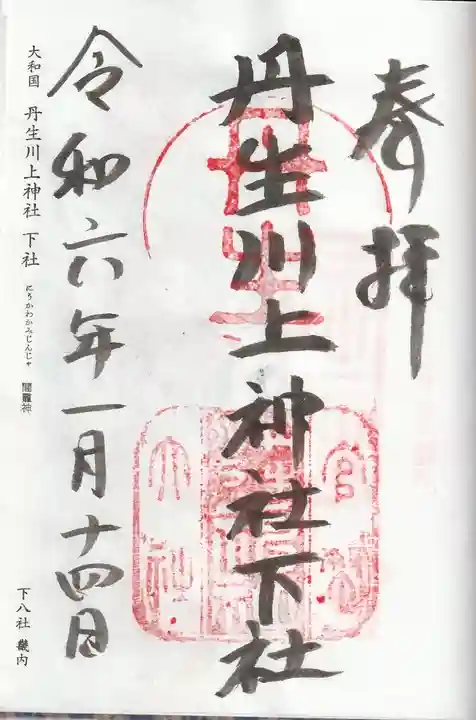 奉拝
丹生川上神社下社
令和六年一月十四日
大和国 丹生川上神社 下社 にうかわかみじんじゃ 闇龗神
下八社 畿内